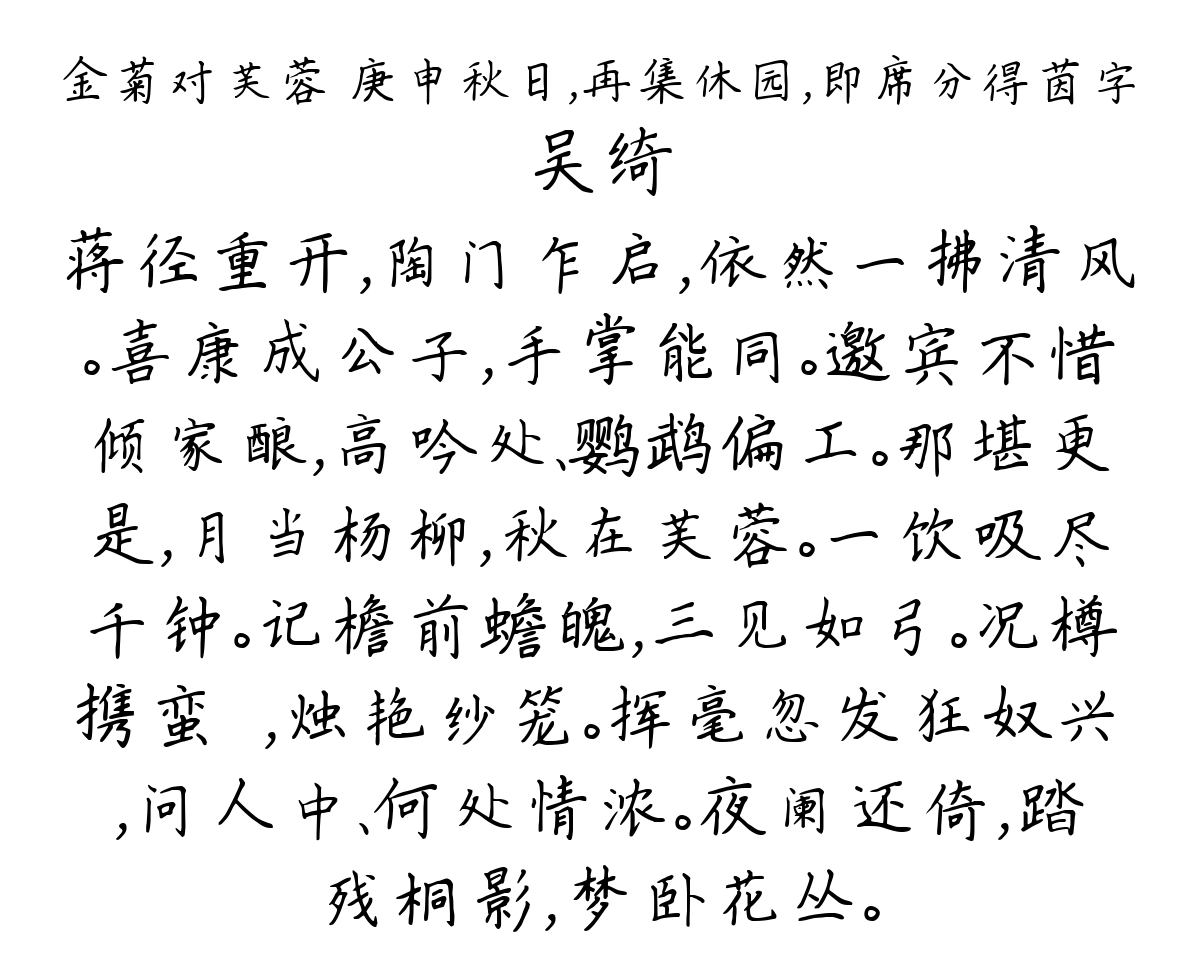 金菊对芙蓉 庚申秋日,再集休园,即席分得茵字
吴绮
蒋径重开,陶门乍启,依然一拂清风
。喜康成公子,手掌能同。邀宾不惜
倾家酿,高吟处、鹦鹉偏工。那堪更
是,月当杨柳,秋在芙蓉。一饮吸尽
千钟。记檐前蟾魄,三见如弓。况樽
携蛮 ,烛艳纱笼。挥毫忽发狂奴兴
,问人中、何处情浓。夜阑还倚,踏
残桐影,梦卧花丛。